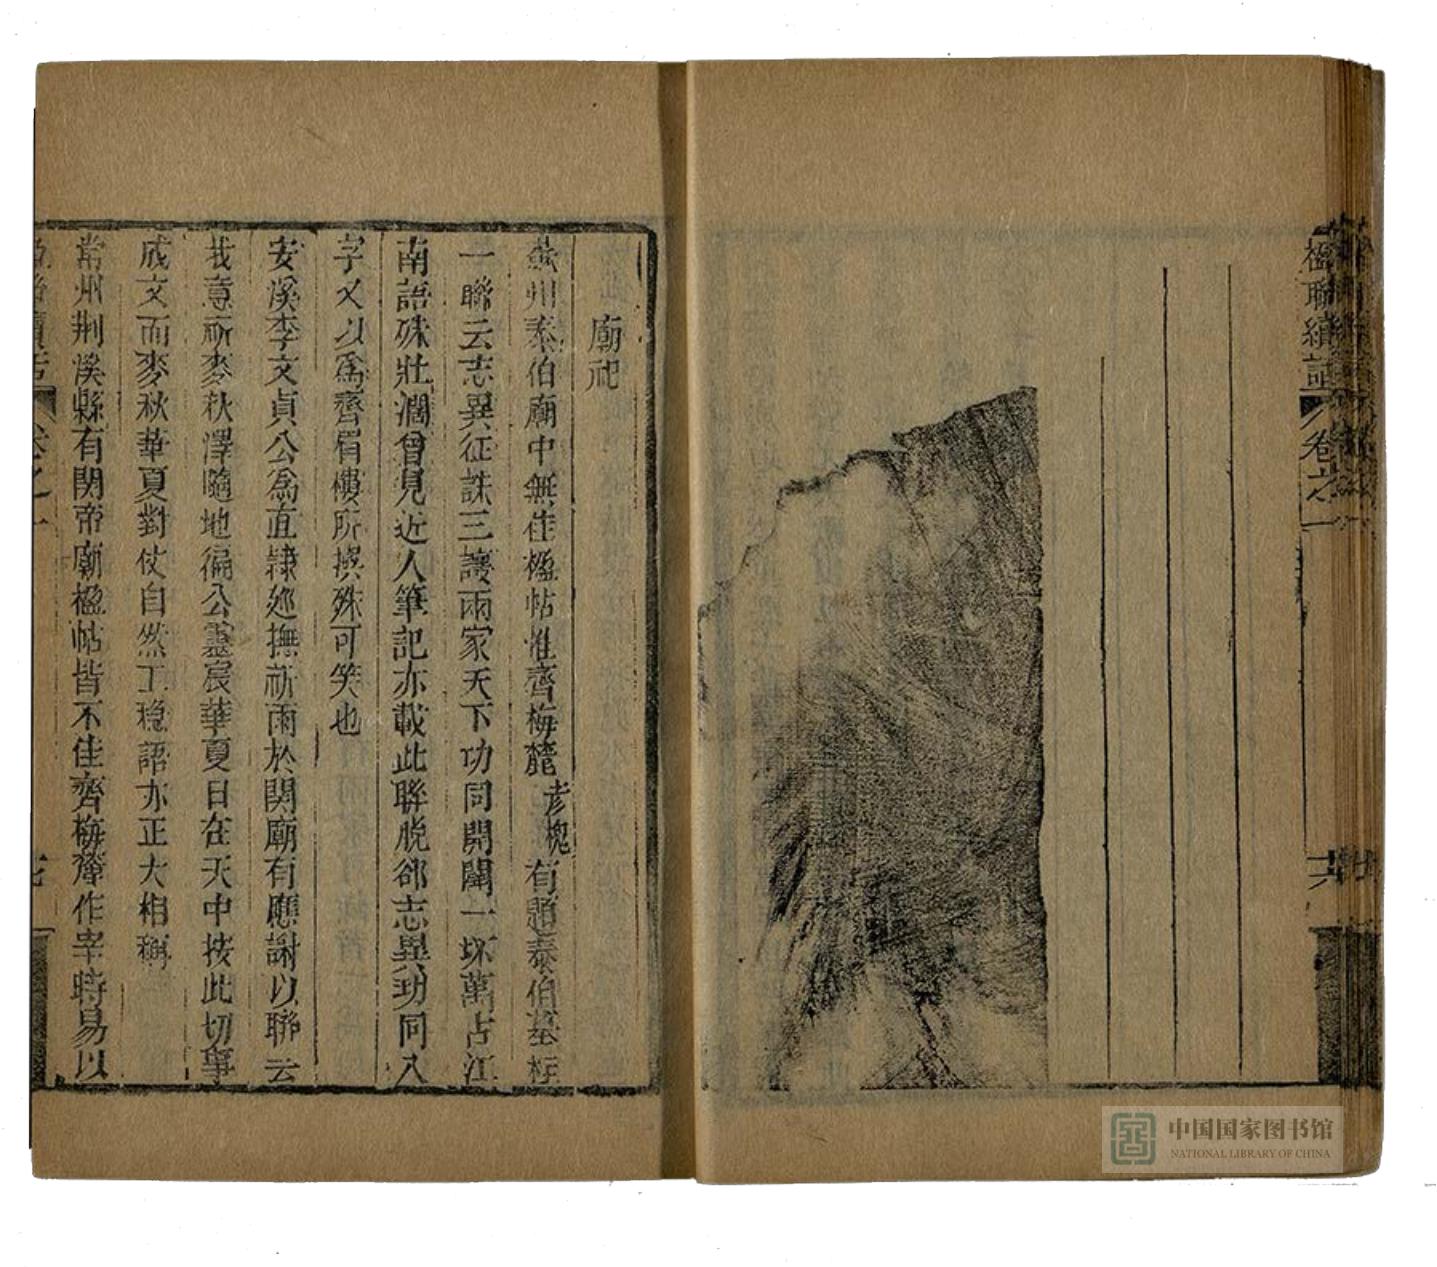 楹聯續話 卷之一
十六
廟祀
蘇州泰伯廟中無佳楹帖惟齊梅麓彥槐有題泰伯墓柱
一聯云志異征誅三讓兩家天下功同開闢一抔萬古江
南語殊壯濶曾見近人筆記亦載此聯脫郤志異功同入
字又以爲齊眉樓所撰殊可笑也
安溪李文貞公爲直隸廵撫祈雨於關廟有應謝以聯云
我意祈麥秋澤隨地徧公靈宸華夏日在天中按此切事
成文而麥秋華夏對仗自然工穩語亦正大相稱
常州荆溪縣有關帝廟楹帖皆不佳齊梅麓作宰時易以
中国国家图书馆
NATIONAL LIBRARY OF CHINA